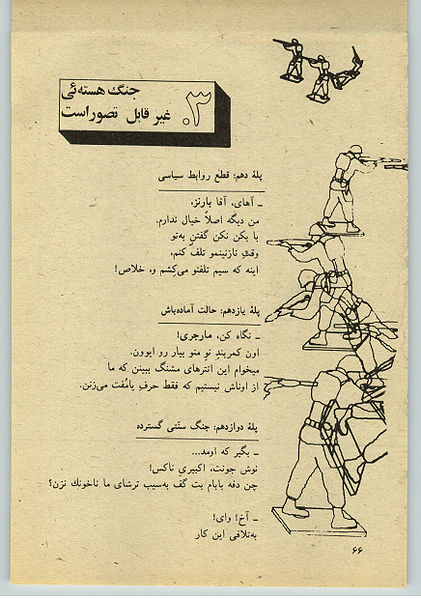 ۳.
جنگ هسته‌ئی
غیر قابل تصور است
پلهٔ دهم: قطع روابط سیاسی
ـ آهای، آقا بارنز،
من دیگه اصلاً خیال ندارم.
با بکن نکن گفتن به‌تو
وقتِ نازنینمو تلف کنم،
اینه که سیم تلفنو می‌کِشم و، خلاص!
پلهٔ یازدهم: حالت آماده‌باش
ـ نگاه کن، مارجری!
اون کمربندِ نوِ منو بیار رو ایوون.
میخوام این انترهای مشنگ ببینن که ما
از اوناش نیستیم که فقط حرفِ یامُفت می‌زنن.
پلهٔ دوازدهم: جنگ سنّتی گسترده
ـ بگیر که اومد...
نوش جونت، اکبیریِ ناکس!
چن دفه بابام بِت گف به‌سیب ترشای ما ناخونك نزن؟
ـ آخ! وای!
به‌تلافی این کار
۶۶